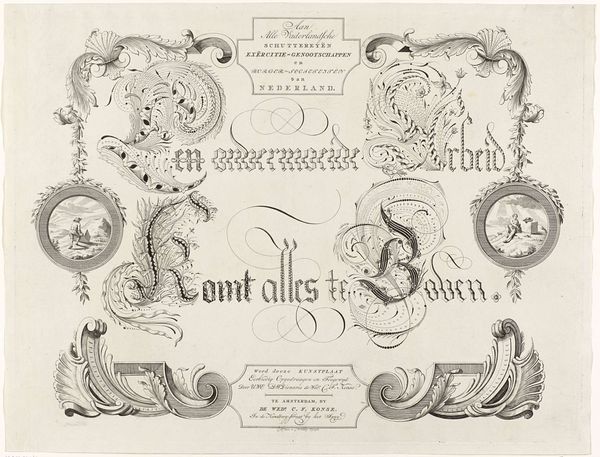 Aan
Alle Vaderlandsche
SCHUTTEREYËN
EXËRCITIE-GENOOTSCHAPPEN
en
BURGER-SOCIETEITEN
van
NEDERLAND.
Een onvermoeide Arbeid
Komt alles te Boven.
Word deeze KUNSTPLAAT
Eerbiedig Opgedraagen en Toegewyd
Door
TE AMSTERDAM, BY
DE WED. C. F. KONSE.
In de by het